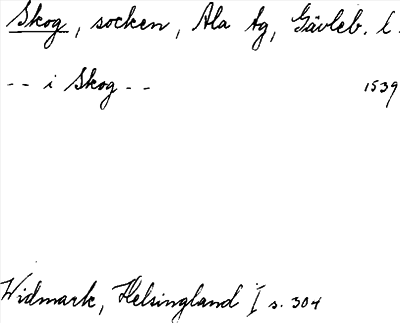 Skog, socken, Ala tg, Gävleb. l.
-- i Skog -- 1539
Widmark, Helsingland I s. 304